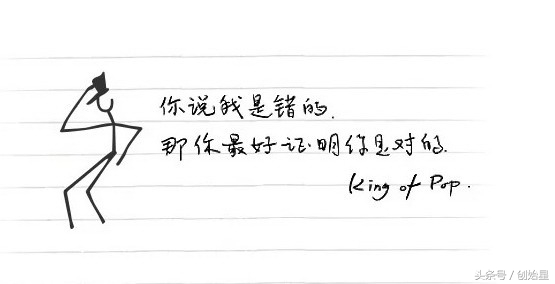 你说我是错的.
那你最好证明你是对的.
King of Pop.
头条号 / 创始星